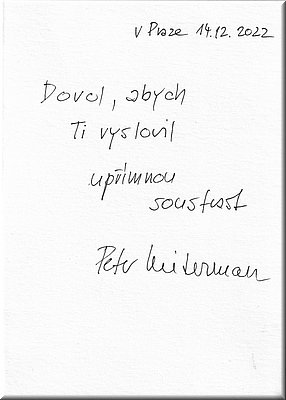 v Praze 14.12.2022
Dovol, abych
Ti vyslovil
upřímnou
soustrast
Petr